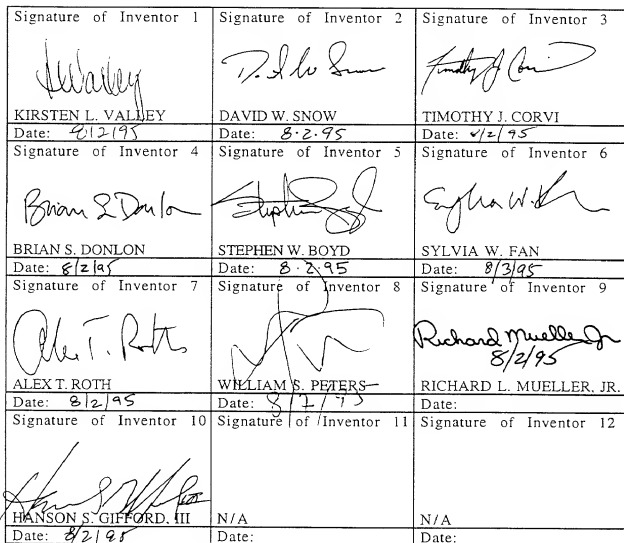 Signature of Inventor 1 Signature of Inventor 2 Signature of Inventor 3
KIRSTEN L. VALLEY DAVID W. SNOW TIMOTHY J. CORVI
Date: 8/2/95 Date: 8.2.95 Date: 8/2/95
Signature of Inventor 4 Signature of Inventor 5 Signature of Inventor 6
Brian S Donlon
BRIAN S. DONLON STEPHEN W. BOYD SYLVIA W. FAN
Date: 8/2/95 Date: 8.2.95 Date: 8/3/95
Signature of Inventor 7 Signature of Inventor 8 Signature of Inventor 9
Alex T. Roth Richard Mueller Jr
8/2/95
ALEX T. ROTH WILLIAM S. PETERS RICHARD L. MUELLER, JR.
Date: 8/2/95 Date: 8/7/95 Date:
Signature of Inventor 10 Signature of Inventor 11 Signature of Inventor 12
HANSON S. GIFFORD, III N/A N/A
Date: 8/2/95 Date: Date: